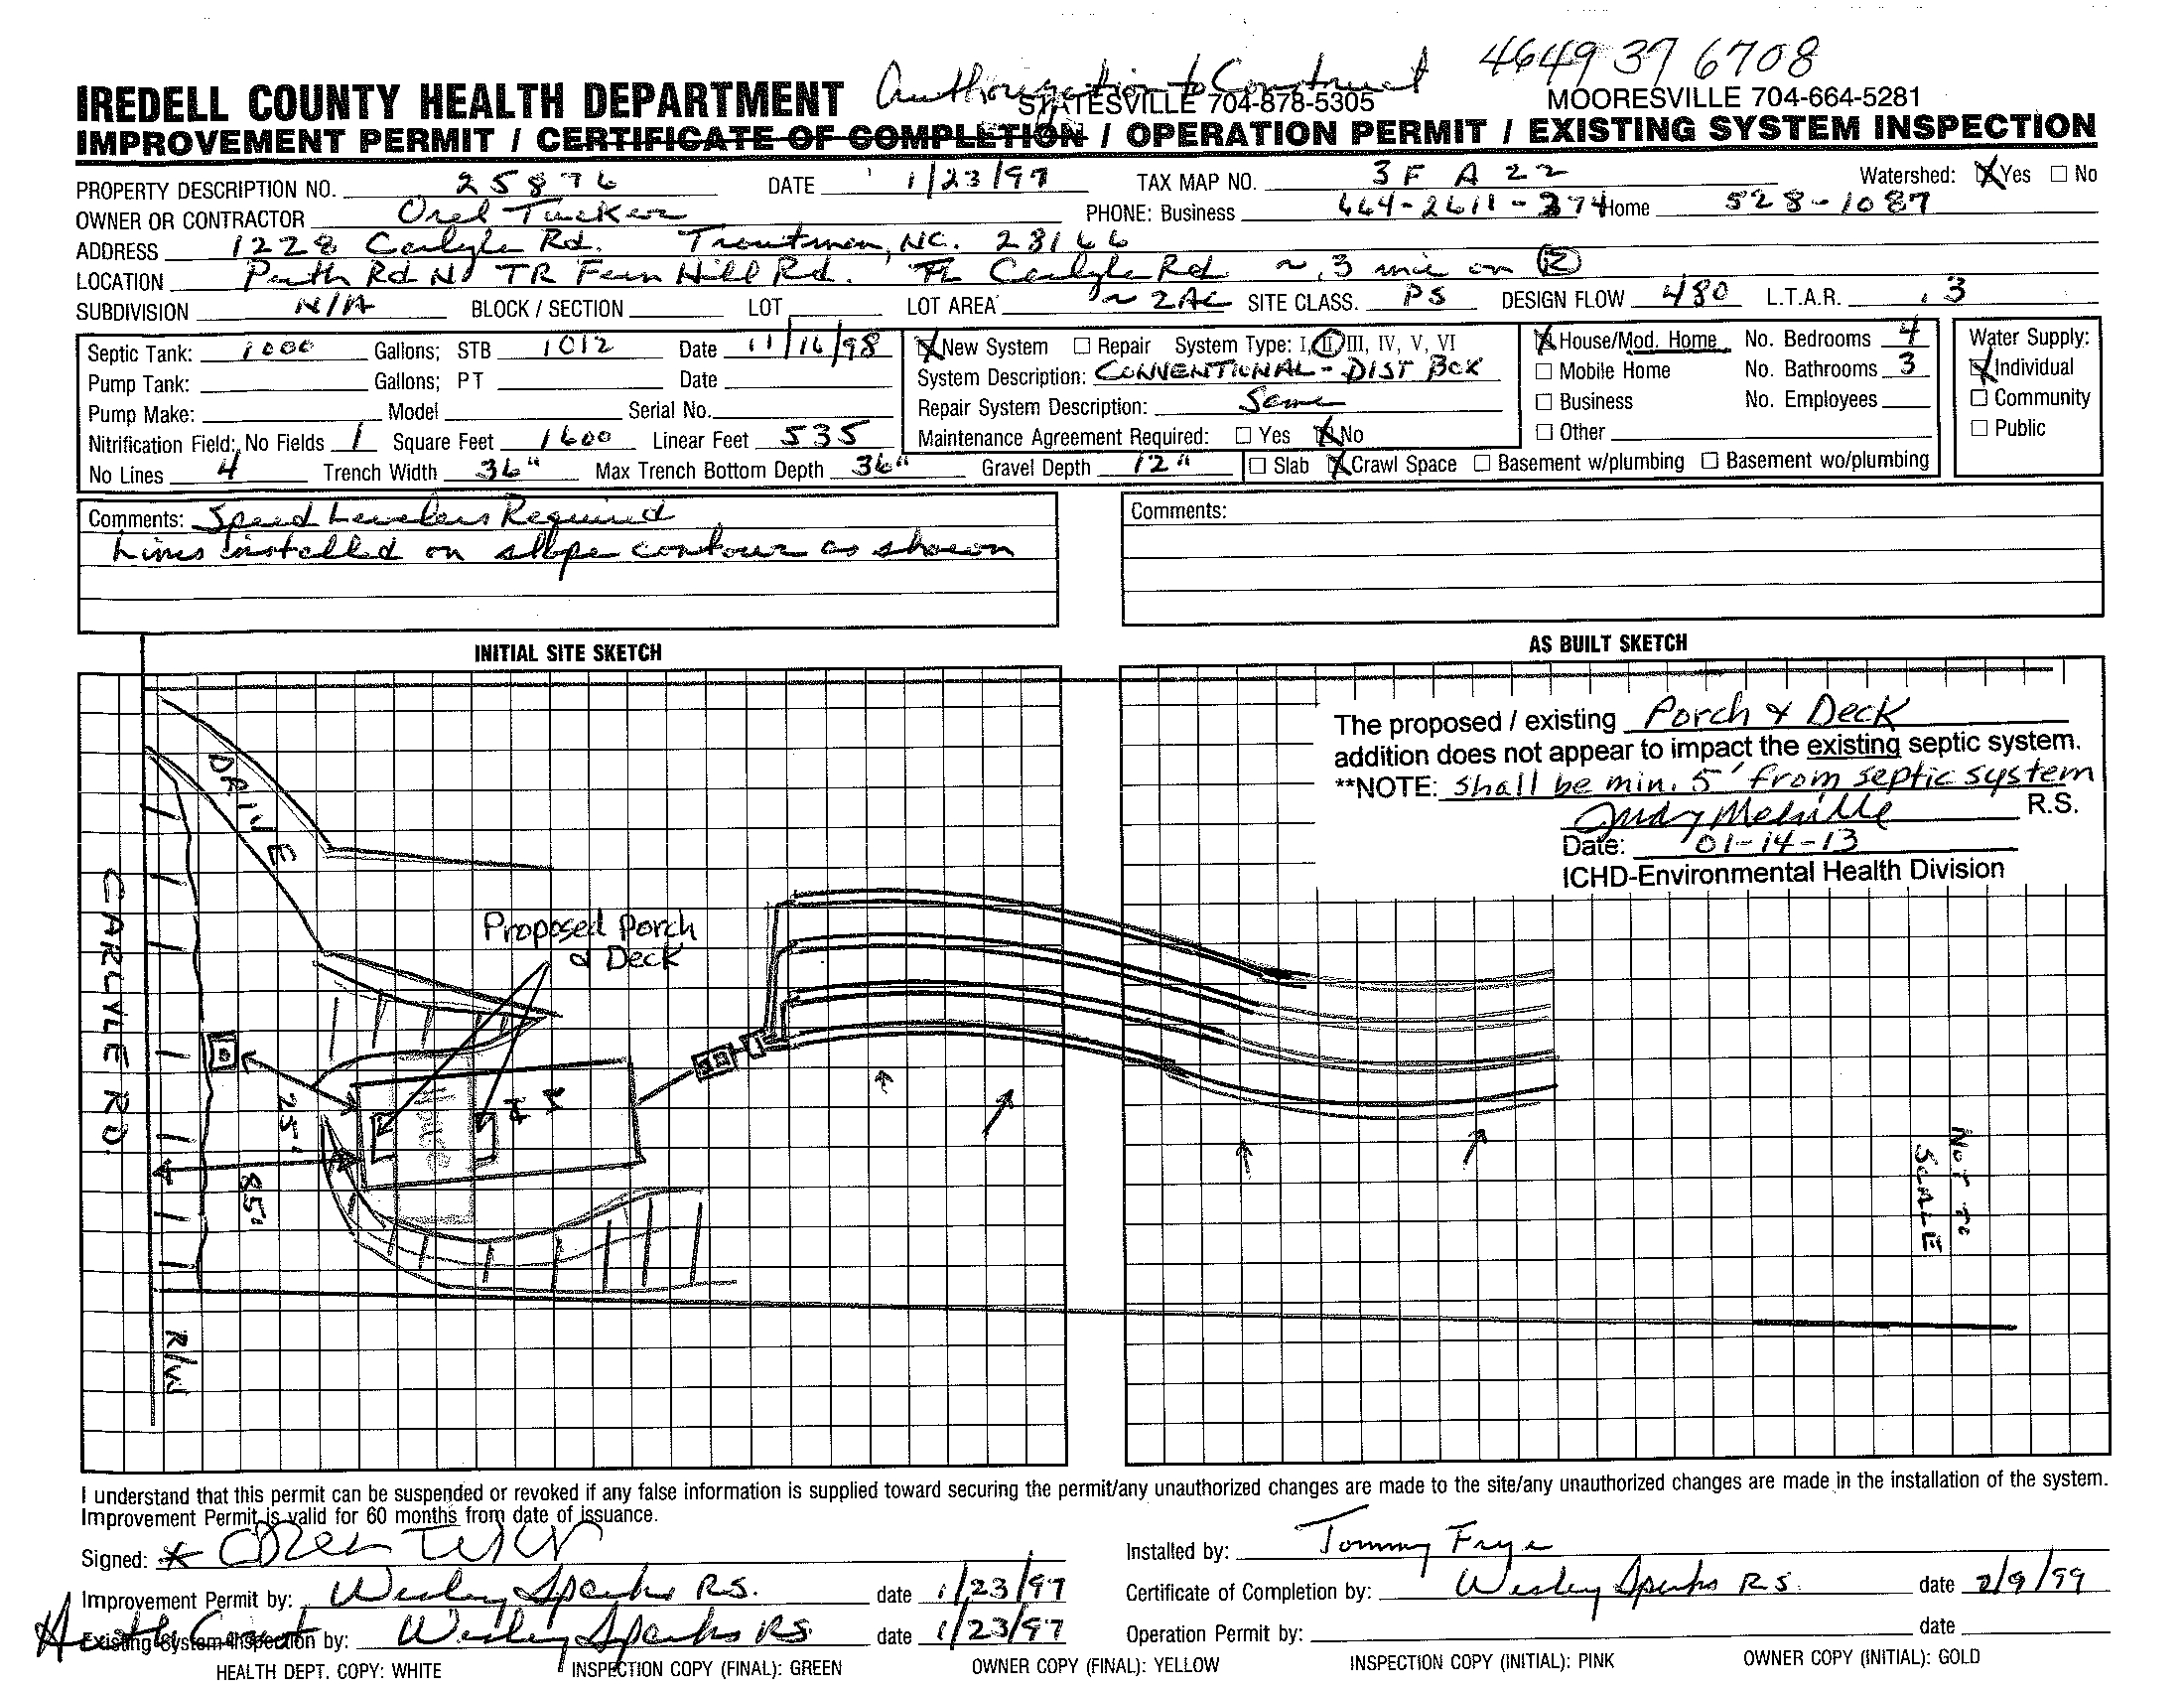 Authorization to Construct 4649 37 6708
IREDELL COUNTY HEALTH DEPARTMENT STATESVILLE 704-878-5305 MOORESVILLE 704-664-5281
IMPROVEMENT PERMIT / CERTIFICATE OF COMPLETION / OPERATION PERMIT / EXISTING SYSTEM INSPECTION
PROPERTY DESCRIPTION NO. 25876 DATE 1/23/97 TAX MAP NO. 3F A 22 Watershed: Yes No
OWNER OR CONTRACTOR Orel Tucker PHONE: Business 664-2611-374 Home 528-1087
ADDRESS 1228 Carlyle Rd. Troutman, NC. 28166
LOCATION Perth Rd N. TR Fern Hill Rd. TL Carlyle Rd ~ .3 mi on R
SUBDIVISION N/A BLOCK / SECTION LOT LOT AREA ~ 2AC SITE CLASS. PS DESIGN FLOW 480 L.T.A.R. .3
Septic Tank: 1000 Gallons; STB 1012 Date 11/16/98
Pump Tank: Gallons; PT Date
Pump Make: Model Serial No.
Nitrification Field: No Fields 1 Square Feet 1600 Linear Feet 535
No Lines 4 Trench Width 36" Max Trench Bottom Depth 36" Gravel Depth 12"
New System Repair System Type: I, II, III, IV, V, VI
System Description: CONVENTIONAL - DIST BOX
Repair System Description: Same
Maintenance Agreement Required: Yes No
House/Mod. Home No. Bedrooms 4
Mobile Home No. Bathrooms 3
Business No. Employees
Other
Slab Crawl Space Basement w/plumbing Basement wo/plumbing
Water Supply:
Individual
Community
Public
Comments: Speed Levelers Required
Lines installed on slope contour as shown
Comments:
INITIAL SITE SKETCH
AS BUILT SKETCH
The proposed / existing Porch & Deck
addition does not appear to impact the existing septic system.
**NOTE: Shall be min. 5' from septic system
Judy Melville R.S.
Date: 01-14-13
ICHD-Environmental Health Division
DRIVE
CARLYLE RD.
Proposed Porch
& Deck
25'
85'
R/W
NOT TO
SCALE
I understand that this permit can be suspended or revoked if any false information is supplied toward securing the permit/any unauthorized changes are made to the site/any unauthorized changes are made in the installation of the system.
Improvement Permit is valid for 60 months from date of issuance.
Signed: *
Installed by: Tommy Frye
Improvement Permit by: Wesley Sparks R.S. date 1/23/97
Certificate of Completion by: Wesley Sparks R.S. date 2/9/99
Existing System Inspection by: Wesley Sparks R.S. date 1/23/97
Operation Permit by: date
HEALTH DEPT. COPY: WHITE INSPECTION COPY (FINAL): GREEN OWNER COPY (FINAL): YELLOW INSPECTION COPY (INITIAL): PINK OWNER COPY (INITIAL): GOLD